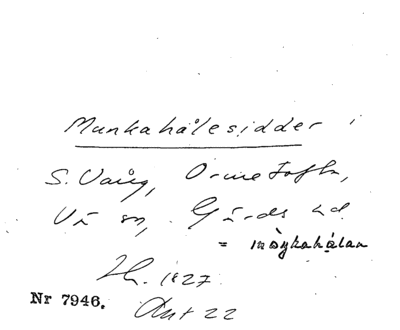 Munkahålesidder
S. Vång, Ormetofta,
Vä sn, Gärds hd.
= mòŋkahålan
1827
Nr 7946. Ant 22